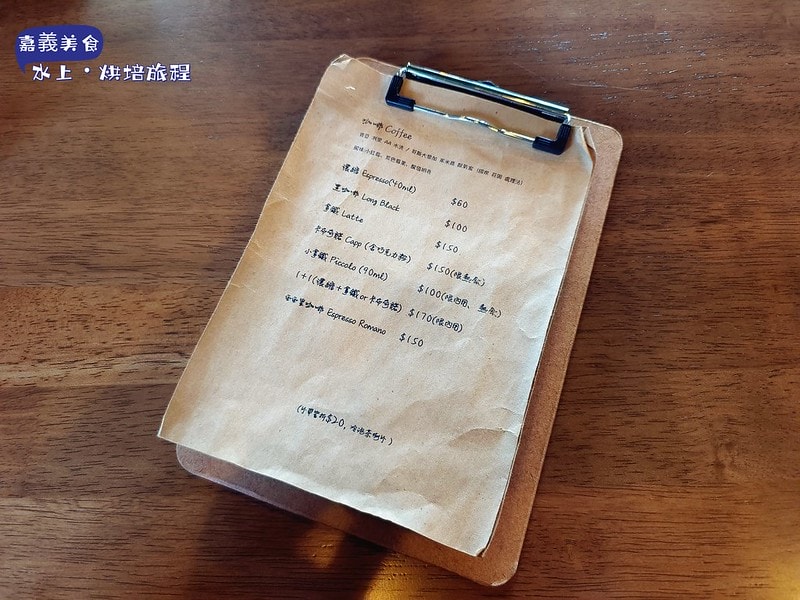 嘉義美食
水上·烘培旅程
咖啡 Coffee
濃縮 Espresso(40ml) $60
黑咖啡 Long Black $100
拿鐵 Latte $150
卡布奇諾 Capp (含巧克力粉) $150(限熱飲)
小拿鐵 Piccolo (90ml) $100(限內用、熱飲)
1+1(濃縮+拿鐵or卡布奇諾) $170(限內用)
黑咖啡 Espresso Romano $150
$20,